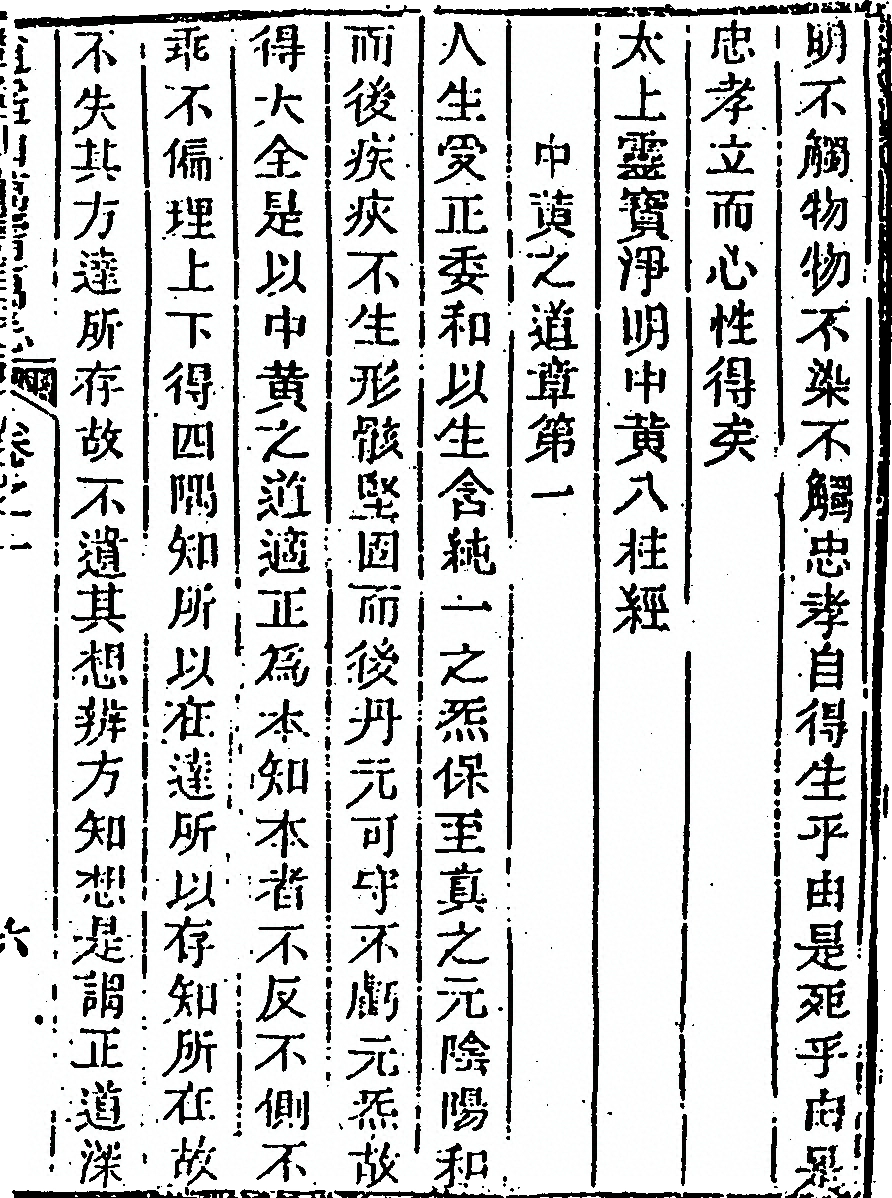 明不觸物物不染不觸忠孝自得生乎由是死乎由是
忠孝立而心性得矣
太上靈寶淨明中黃八柱經
中黃之道章第一
人生受正委和以生含純一之炁保至真之元陰陽和
而後疾疢不生形骸堅固而後丹元可守不虧元炁故
得大全是以中黃之道適正爲本知本者不反不側不
乖不偏理上下得四隅知所以在達所以存知所在故
不失其方達所存故不遺其想辨方知想是謂正道深
卷之二
六